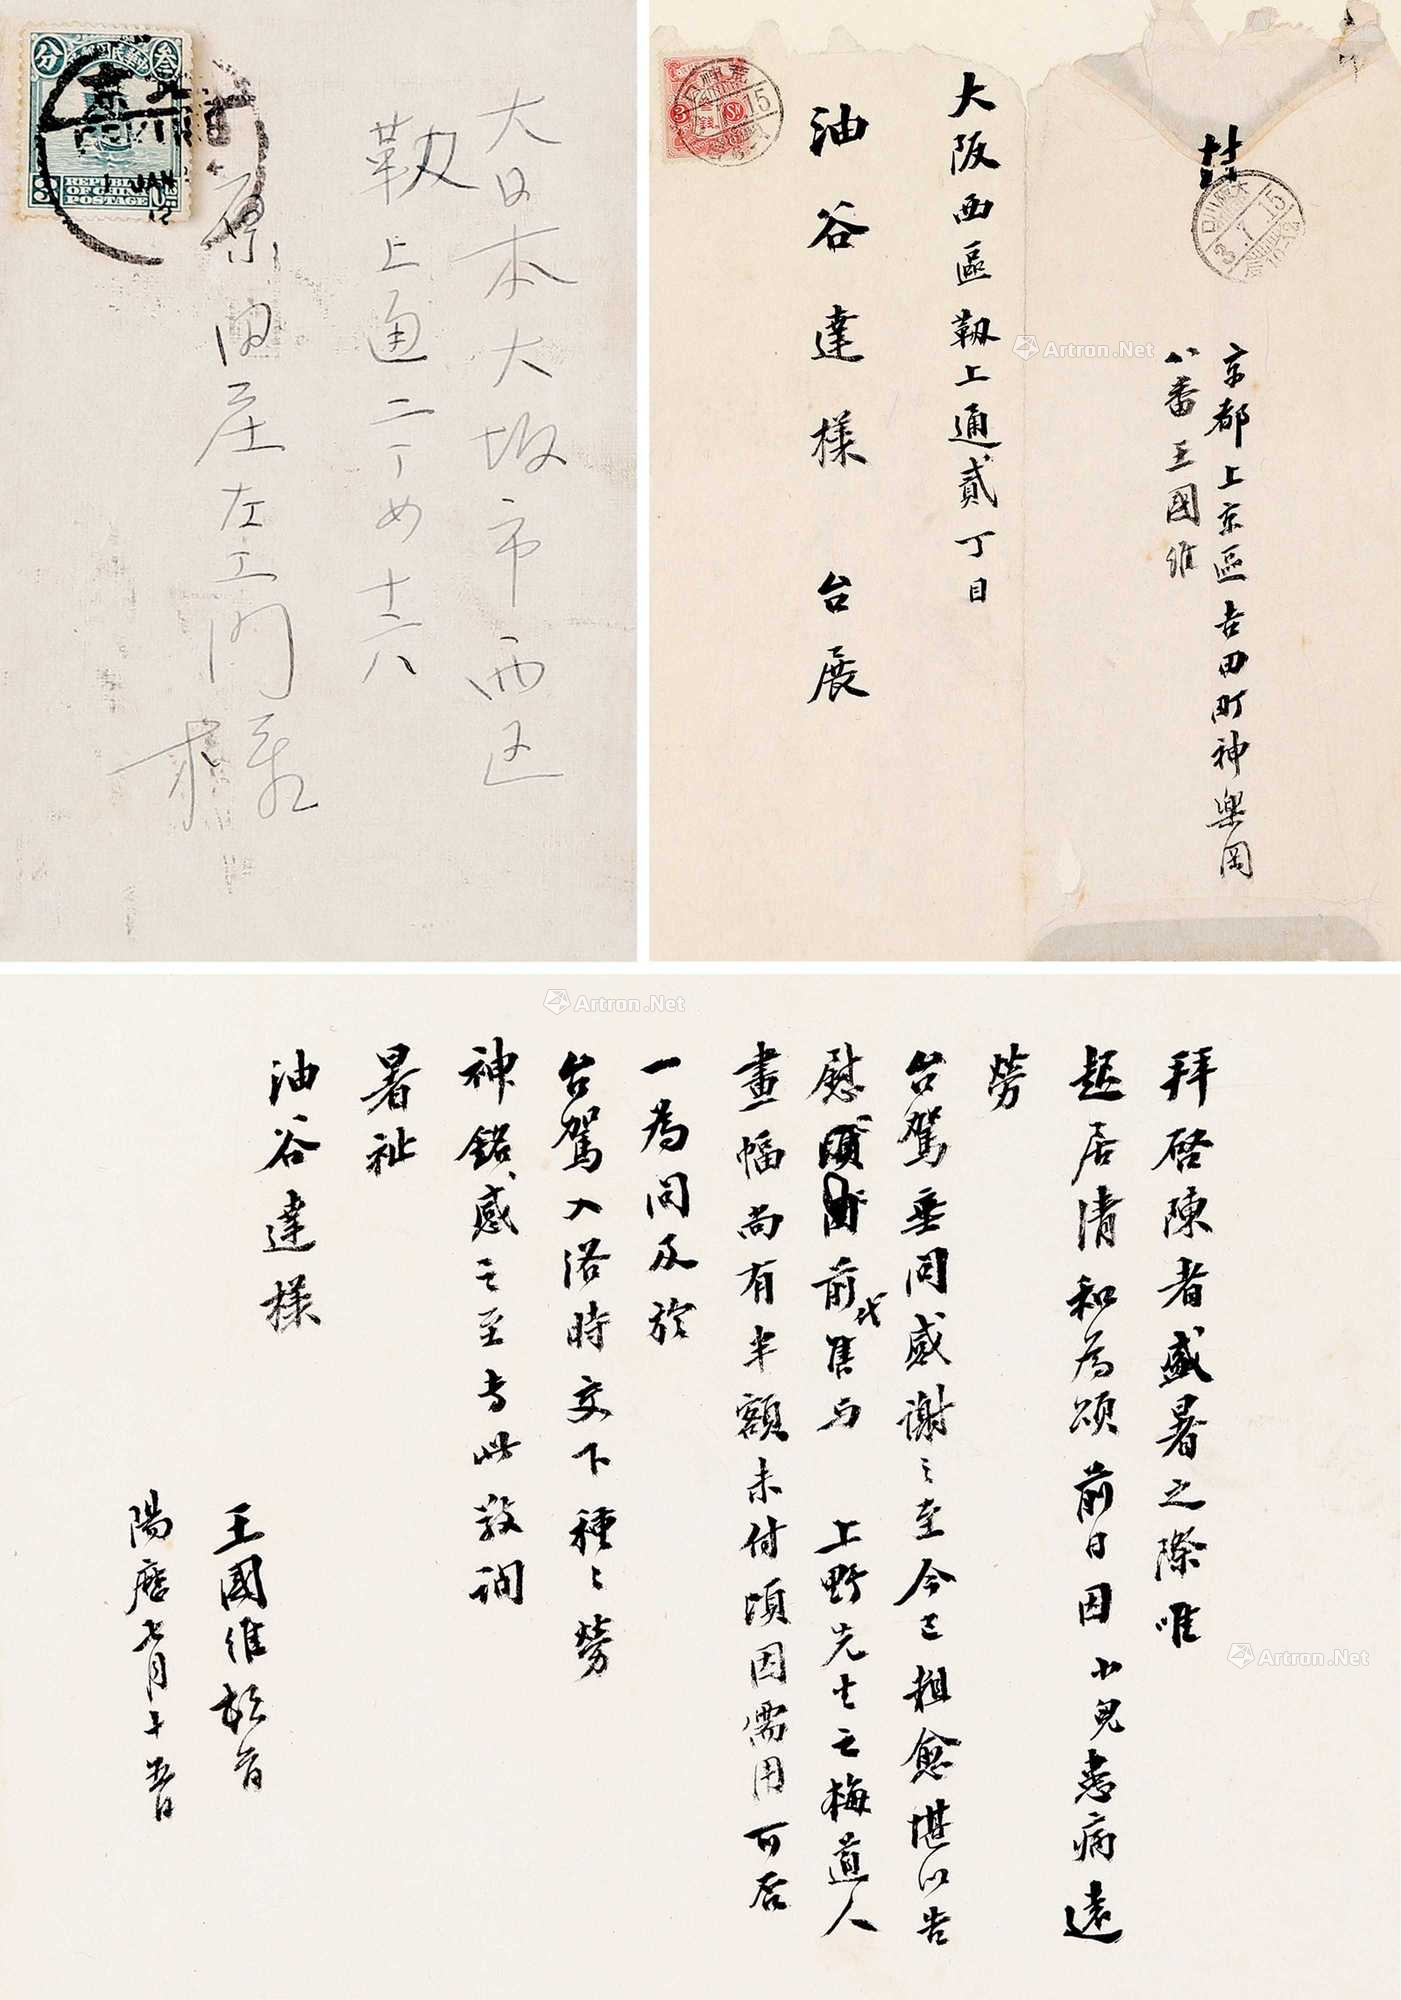 大日本大坂市西区
靱上通二丁め十六
原田庄左工門様
分 叁
3
REPUBLIC OF CHINA
POSTAGE
1 JAN
12
大阪西區靱上通貳丁目
油谷達様 台展
3 銭
15
京都上京區吉田町神樂岡
八番王國維
3.7.15
后10-12
拜啓陳者盛暑之際唯
起居清和為頌前日因小兒患病遠
勞
台駕垂問感謝之至今已粗愈堪以告
慰前代售与 上野先生之梅道人
畫幅尚有半額未付頃因需用可否
一為問及於
台駕入洛時交下種種勞
神銘感之至专此敬询
暑祉
油谷達様
王國維頓首
陽曆七月十五日
Artron.Net
Artron.Net
Artron.Net